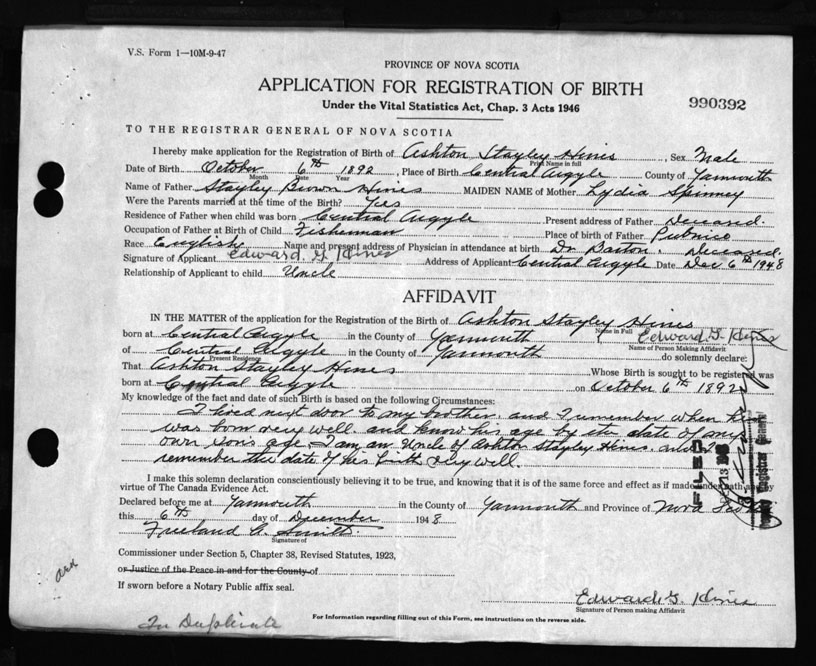 V.S. Form 1—10M-9-47
PROVINCE OF NOVA SCOTIA
APPLICATION FOR REGISTRATION OF BIRTH
Under the Vital Statistics Act, Chap. 3 Acts 1946
990392
TO THE REGISTRAR GENERAL OF NOVA SCOTIA
I hereby make application for the Registration of Birth of Ashton Stayley Hines, Sex Male
Print Name in full
Date of Birth October 6th 1892, Place of Birth Central Argyle County of Yarmouth
Month Date Year
Name of Father Stayley Brown Hines MAIDEN NAME of Mother Lydia Spinney
Were the Parents married at the time of the Birth? Yes
Residence of Father when child was born Central Argyle Present address of Father Deceased.
Occupation of Father at Birth of Child Fisherman Place of birth of Father Pubnico
Race English Name and present address of Physician in attendance at birth Dr. Barton. Deceased.
Signature of Applicant Edward. G. Hines Address of Applicant Central Argyle Date Dec 6th 1948
Relationship of Applicant to child Uncle
AFFIDAVIT
IN THE MATTER of the application for the Registration of Birth of Ashton Stayley Hines
Name in Full
born at Central Argyle in the County of Yarmouth Edward G. Hines
Name of Person Making Affidavit
of Central Argyle in the County of Yarmouth do solemnly declare:
Present Residence
That Ashton Stayley Hines Whose Birth is sought to be registered was
born at Central Argyle on October 6th 1892
My knowledge of the fact and date of such Birth is based on the following Circumstances:
I lived next door to my brother. and I remember when
was born very well. and know his age by the date of my
own sons age. I am an Uncle of Ashton Stayley Hines. and
remember the date of his birth very well.
FILED
I make this solemn declaration conscientiously believing it to be true, and knowing that it is of the same force and effect as if made under oath and by
virtue of The Canada Evidence Act.
Declared before me at Yarmouth in the County of Yarmouth and Province of Nova Scotia
this 6th day of December 1948
Freeland A. Smith
Signature of
Commissioner under Section 5, Chapter 38, Revised Statutes, 1923,
or Justice of the Peace in and for the County of
If sworn before a Notary Public affix seal.
Edward G. Hines
Signature of Person making Affidavit
In Duplicate
For Information regarding filling out of this Form, see instructions on the reverse side.